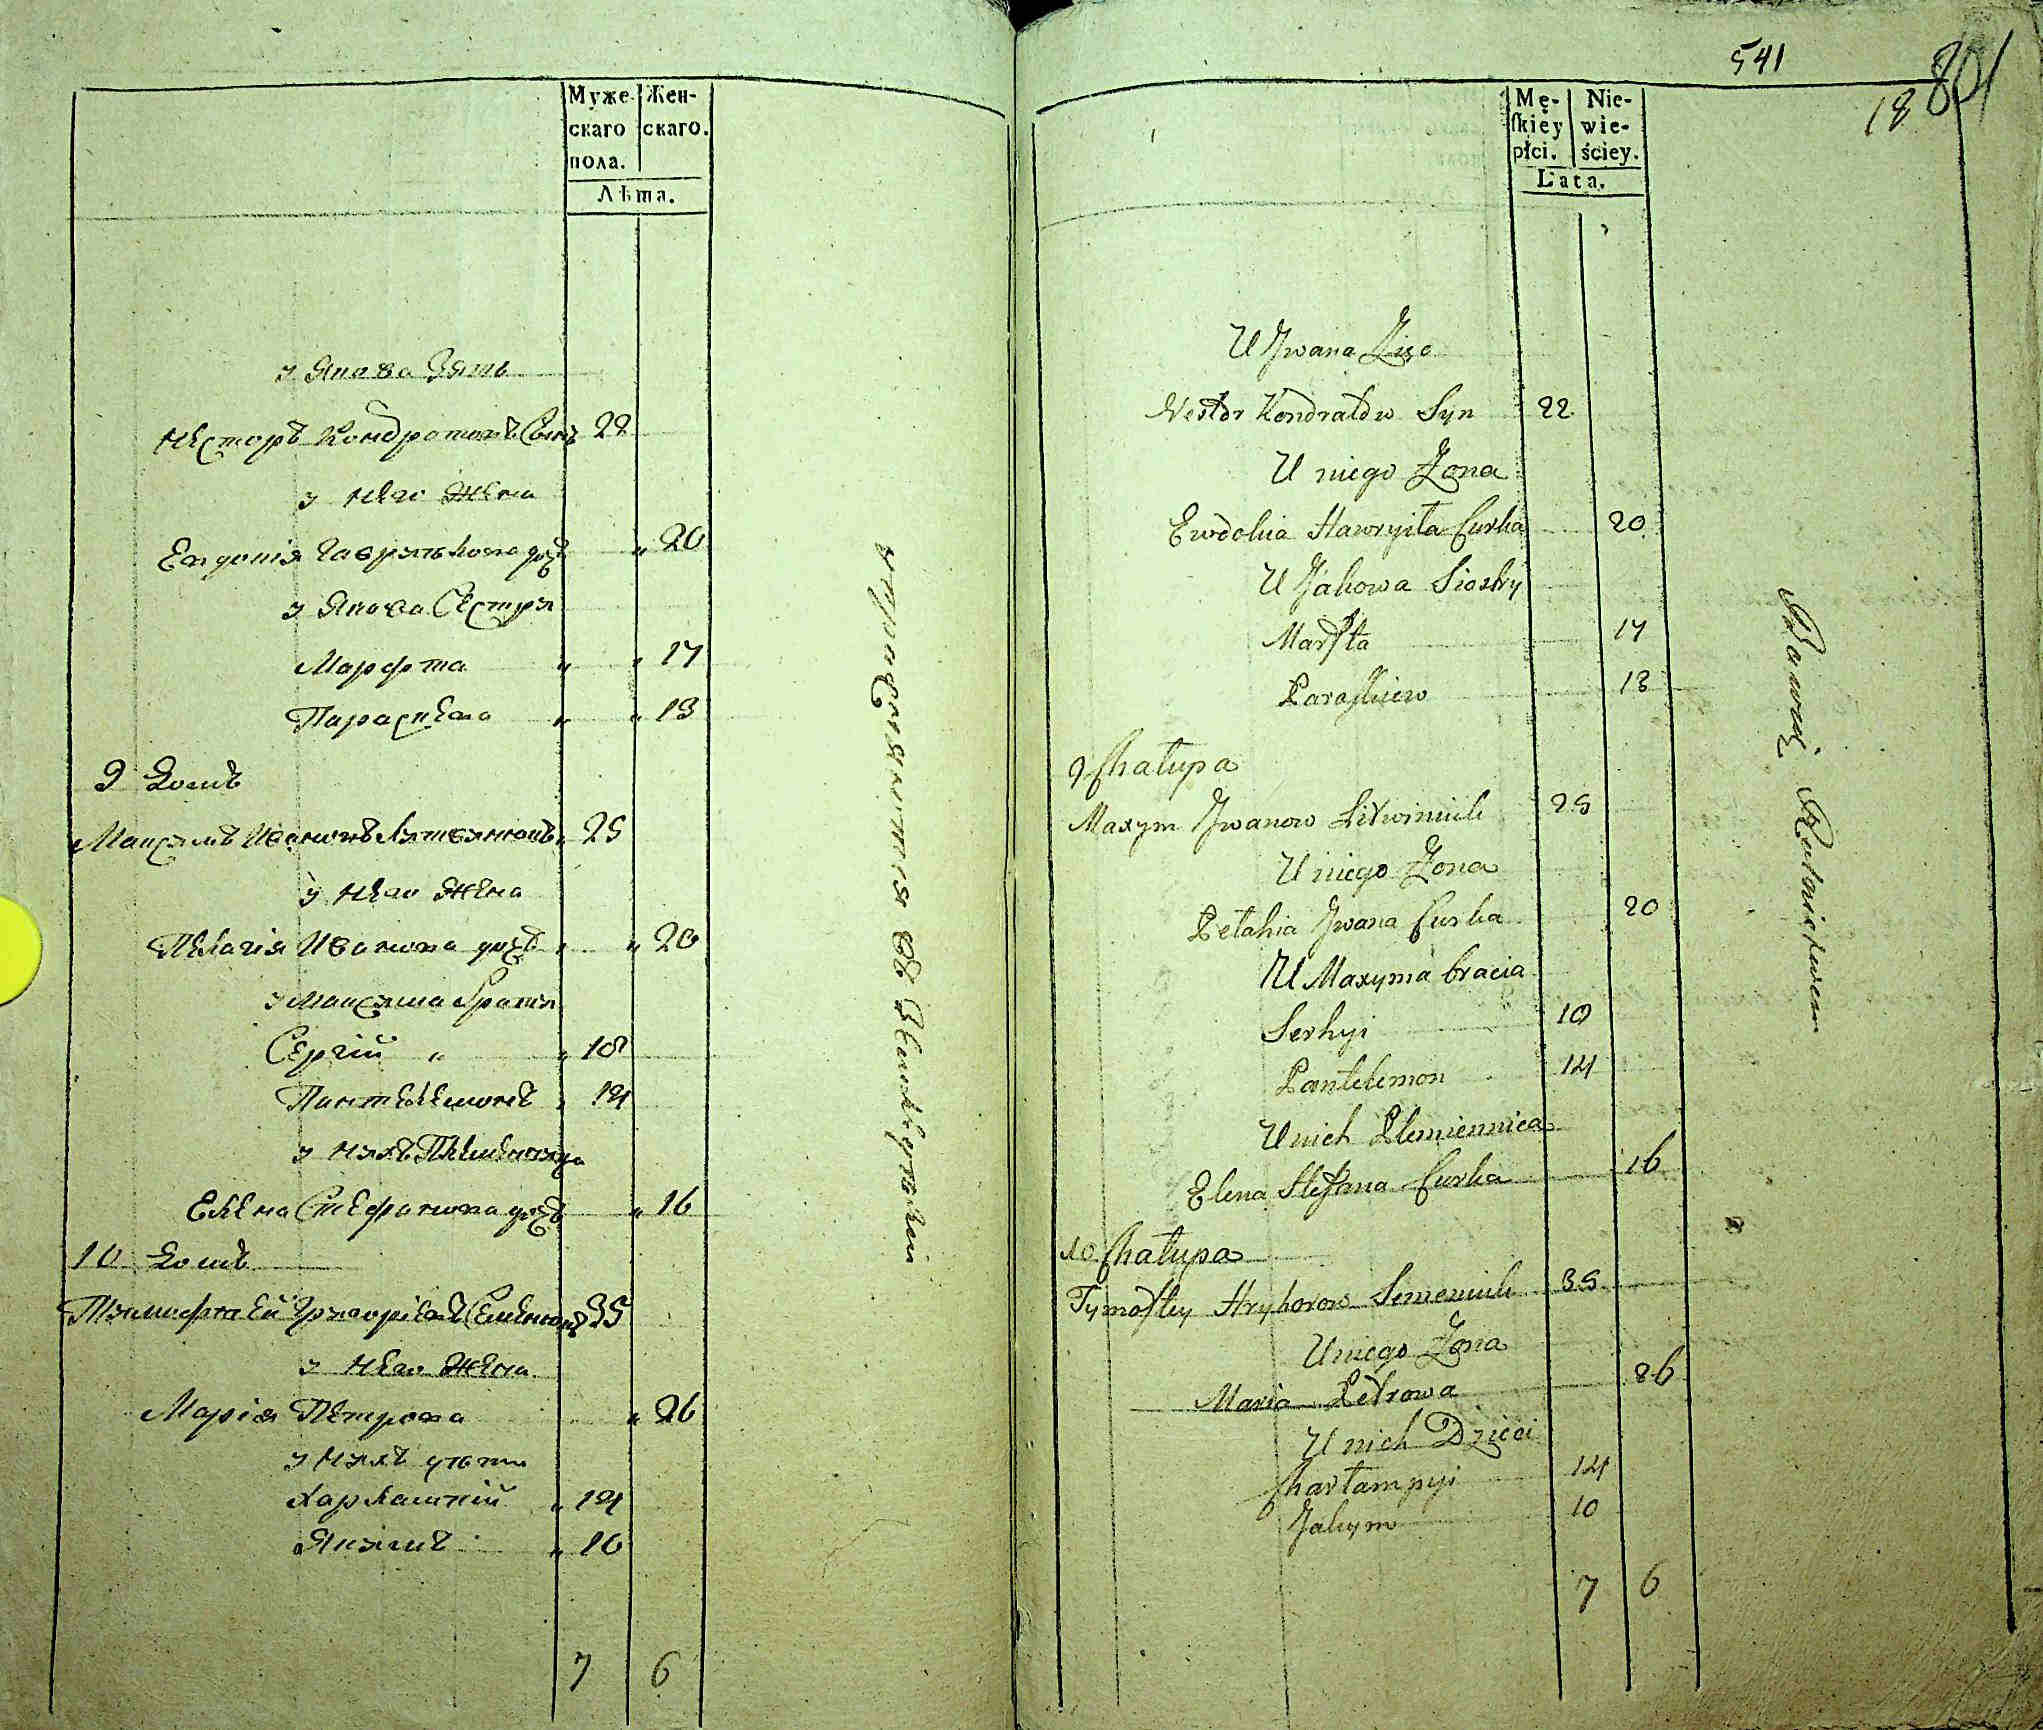 Муже- Жен-
скаго скаго.
пола.
Лѣта.
у Якова Зять
Несторъ Кондратовъ Сынъ 22
у него Жена
Евдокія Гаврилькова дочь 20
у Якова Сестры
Марфта 17
Параскева 13
9 Домъ
Максимъ Ивановъ Литвинюкъ 25
у него Жена
Пелагія Иванова дочь 20
у Максима братья
Сергій 10
Пантелемонъ 14
у нихъ Племенница
Елена Стефанова дочь 16
10 Домъ
Тимофтей Григоріевъ Семенюкъ 35
у него Жена
Марія Петрова 26
у нихъ дѣти
Харлампій 14
Якимъ 10
7 6
въ
541
801
18
Mę- Nie-
ſkiey wie-
płci. ściey.
Lata.
U Jwana Zięc
Nestor Kondratow Syn 22
U niego Zona
Ewdokia Hawryiła Curka 20
U Jakowa Siostry
Marſta 17
Paraſkiew 13
9 Chałupa
Maxym Jwanow Litwiniuk 25
U niego Zona
Pełahia Jwana Curka 20
U Maxyma bracia
Serhyi 10
Pantelemon 14
U nich Plemiennica
Elena Stefana Curka 16
10 Chałupa
Tymoſtey Hryhorow Semeniuk 35
U niego Zona
Maria Petrowa 26
U nich Dzieci
Charłampyi 14
Jakym 10
7 6
Bawią